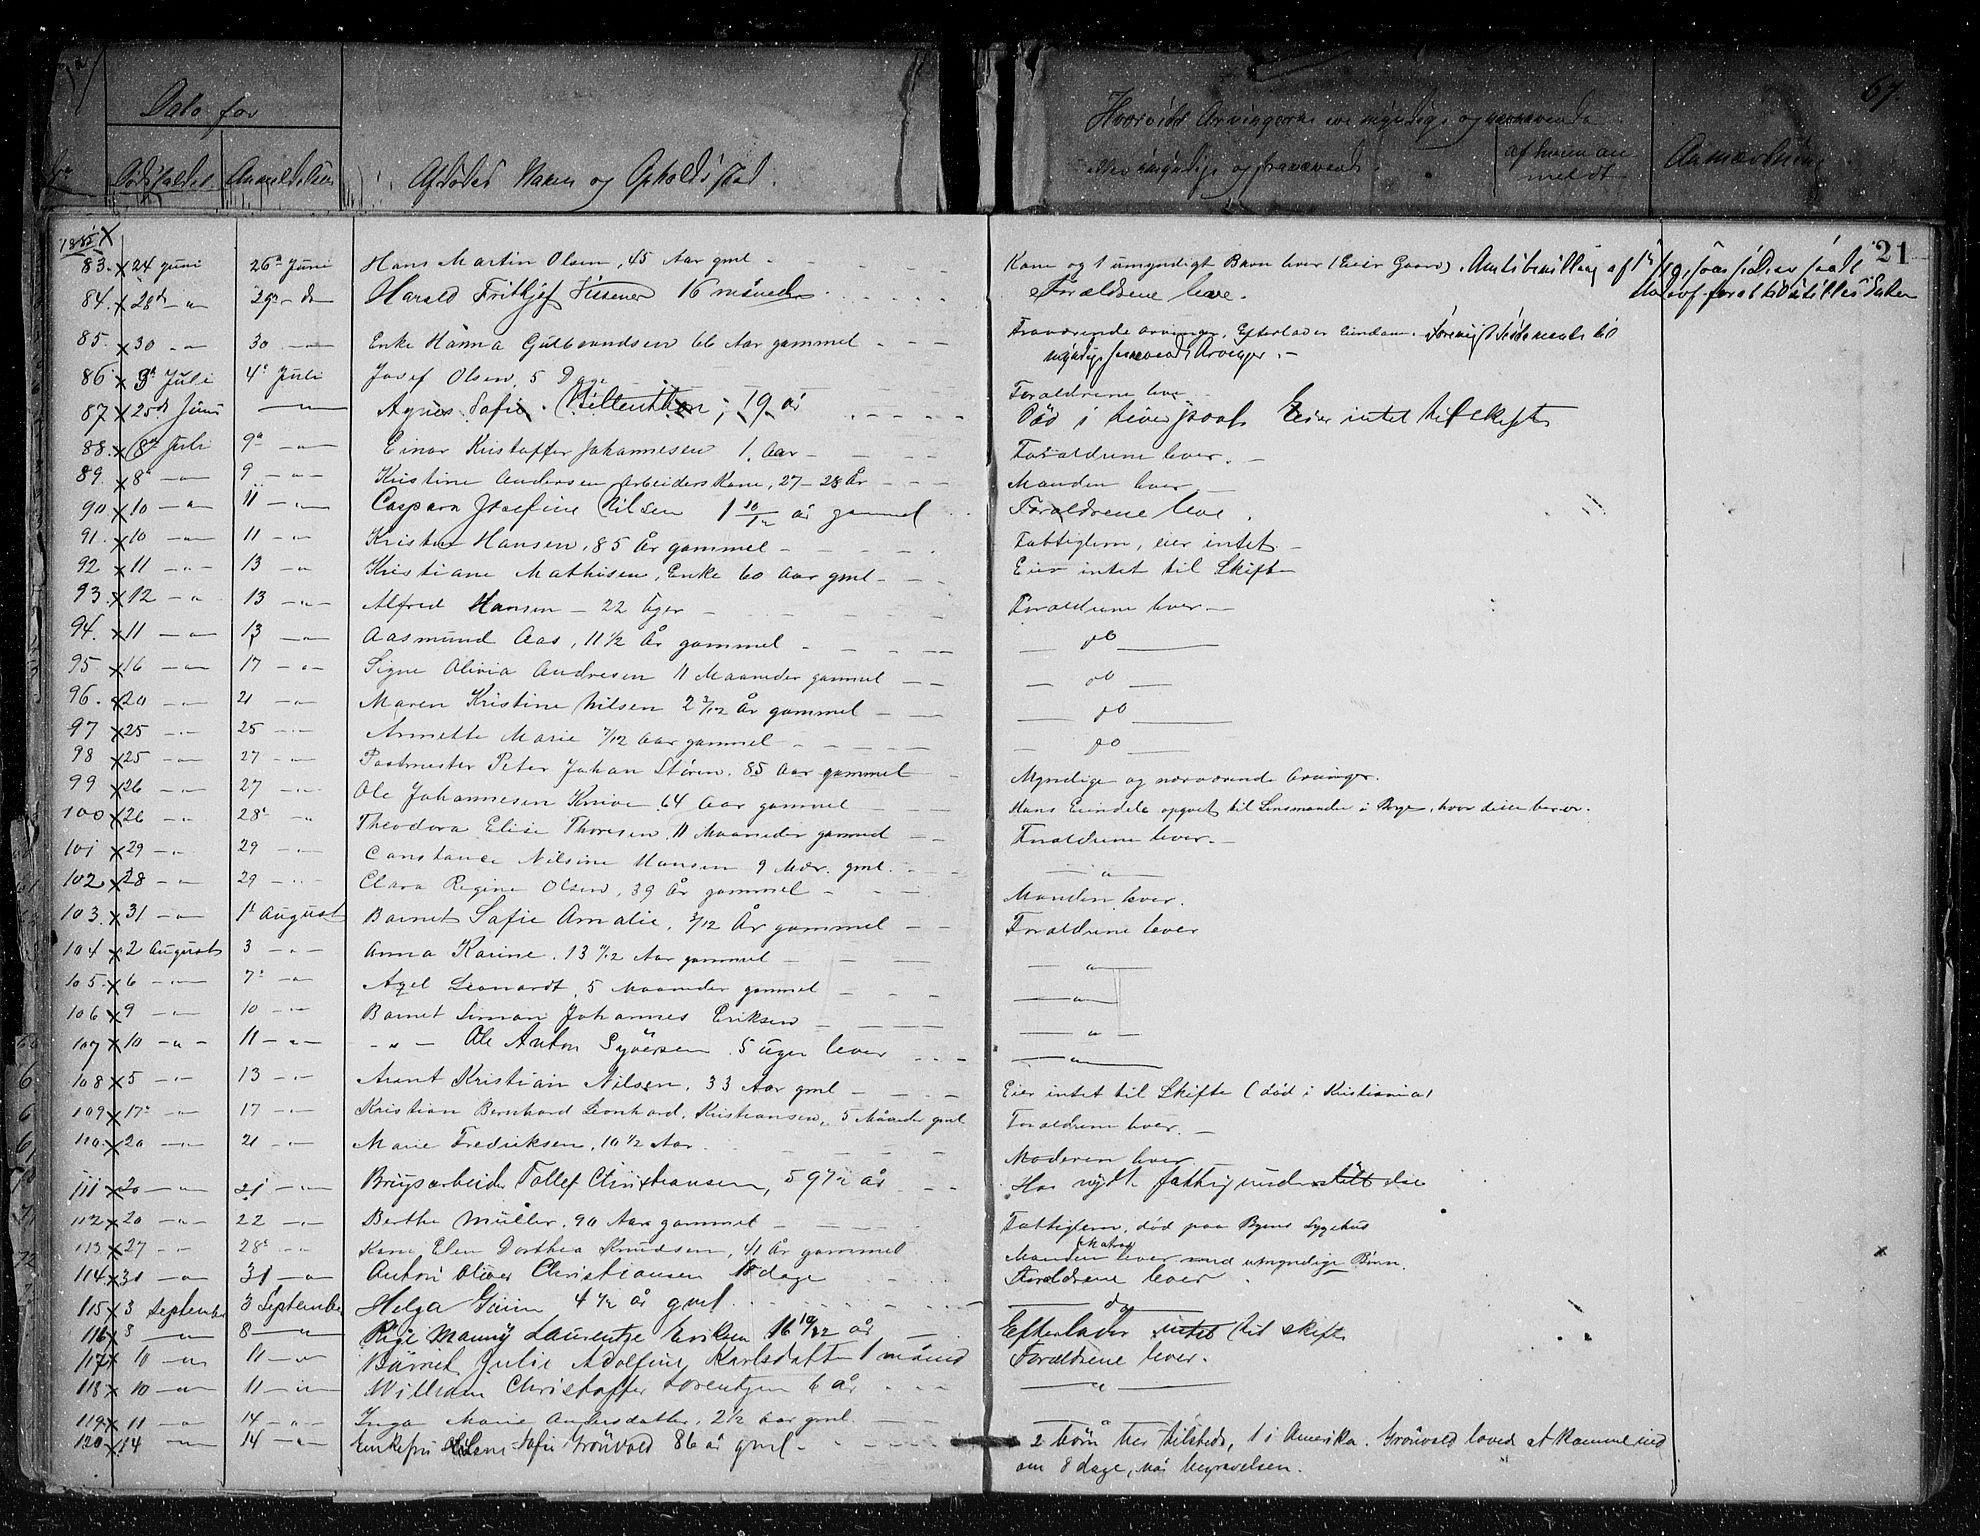 67.
Dato for
Hvorvidt Arvingerne ere myndige og nærværende
Dødsfaldet. Anmeldelsen
Afdødes Navn og Opholdssted.
af hvem an
meldt
Anmærkning
21
1885
83. 24 Juni 26d Juni Hans Martin Olsen, 45 Aar gml - Kone og 1 umyndigt Barn lever (Eier Gaard).
84. 28d - " 29d - " Harald Frithjof 16 måneder Forældrene leve.
85. 30 - " 30 - " Enke Hanna Gulbrandsen 66 Aar gammel - Fraværende arvinger. Efterlader Eiendom.
myndige Arvinger. -
86 3d Juli 4d Juli Josef Olsen, 5 Dage Forældrene lever
87 25d Juni - " - Agnes Sofie 19 år Død i Liverpool. Eier intet til skifte
88. 8d Juli 9d - " Einar Kristoffer Johannesen 1. Aar - Forældrene lever. -
89. 8d - " 9 - " Kristine Andersen Arbeiderskone, 27-28 År - Manden lever -
90 10 - " 11 - " Caspara Josefine Nilsen 1 10/12 år gammel Forældrene leve.
91. 10 - " 11 - " Hansen, 85 År gammel - Fattiglem, eier intet -
92 11 - " 13 - " Kristiane Mathisen, Enke 60 Aar gml - Eier intet til Skifte
93. 12 - " 13 - " Alfred Hansen - 22 Uger - Forældrene lever -
94. 11 - " 13 - " Aasmund Aas, 11 1/2 År gammel - - do -
95 16 - " 17 - " Signe Olivia Andresen 11 Maaneder gammel - - do -
96. 20 - " 21 - " Maren Kristine Nilsen 2 3/12 År gammel - - do -
97 25 - " 25 - " Annette Marie 7/12 Aar gammel - - do -
98 25 - " 27 - " Postmester Peter Johan Støren. 85 Aar gammel - Myndige og nærværende Arvinger.
99 26 - " 27 - " Ole Johannesen Knive 64 Aar gammel - Hans Eiendele opgivet til Lensmanden i Borge, hvor disse berør.
100 26 - " 28d " Theodora Elise Thoresen, 11 Maaneder gammel - Forældrene lever. -
101 29 - " 29 - " Constance Nilsine Hansen 9 Mdr. gml. - - " -
102 28 - " 29 - " Clara Regine Olsen, 39 År gammel - Manden lever.
103. 31 - " 1d August Barnet Sofie Amalie, 3/12 År gammel - Forældrene lever
104 2 Augusts 3 - " - Anna Karine. 13 11/12 Aar gammel - - " -
105. 6 - " 7d - " Axel Leonardt, 5 Maaneder gammel - - " -
106 9 - " 10 - " Barnet Simon Johannes Eriksen - - " -
107 10 - " - 11 - " - - " - Ole Anton Syversen 5 uger lever - - " -
108 5 - " 13 - " Arent Kristian Nilsen, 33 Aar gml - Eier intet til Skifte (død i Kristiania)
109 17d - " 17 - " Kristian Bernhard Leonhard, Kristiansen, 5 Måneder gml Forældrene lever. -
110. 20 - " 21 - " Marie Fredriksen, 10 1/2 Aar. Moderen lever
111 20 - " 21 - " Brugsarbeider Tollef Christiansen, 59 1/2 år Har nydt fattigunderstøttelse
112 20 - " 22 - " Berthe Müller, 90 Aar gammel - Fattiglem, død paa Byens Sygehus
113 27 - " 28d - " Kone Elen Dorthea Knudsen, 41 År gammel Manden lever med umyndige Børn.
114 31 - " 31 - " Anton Oliver Christiansen 18 dage Forældrene lever.
115 3 September 3 September Helga 4 1/2 år gml. - do -
116 8 - " 8 - " Pige Manny Laurentze Eriksen 16 10/12 år - Efterlader intet til skifte
117 10 - " 11 - " Barnet Julie Adolfine Karlsdatter 1 måned Forældrene lever.
118 10 - " 11 - " William Christoffer Lorentzen 6 år - " -
119 11 - " 14 - " Inga Marie Andersdatter, 2 1/2 aar gml.
120 14 - " 14 - " Enkefru Sofie Grønvold 86 år gml - 2 børn her tilstede, 1 i Amerika. Grønvold lovede at komme ind
om 8 dage, når begravelsen.